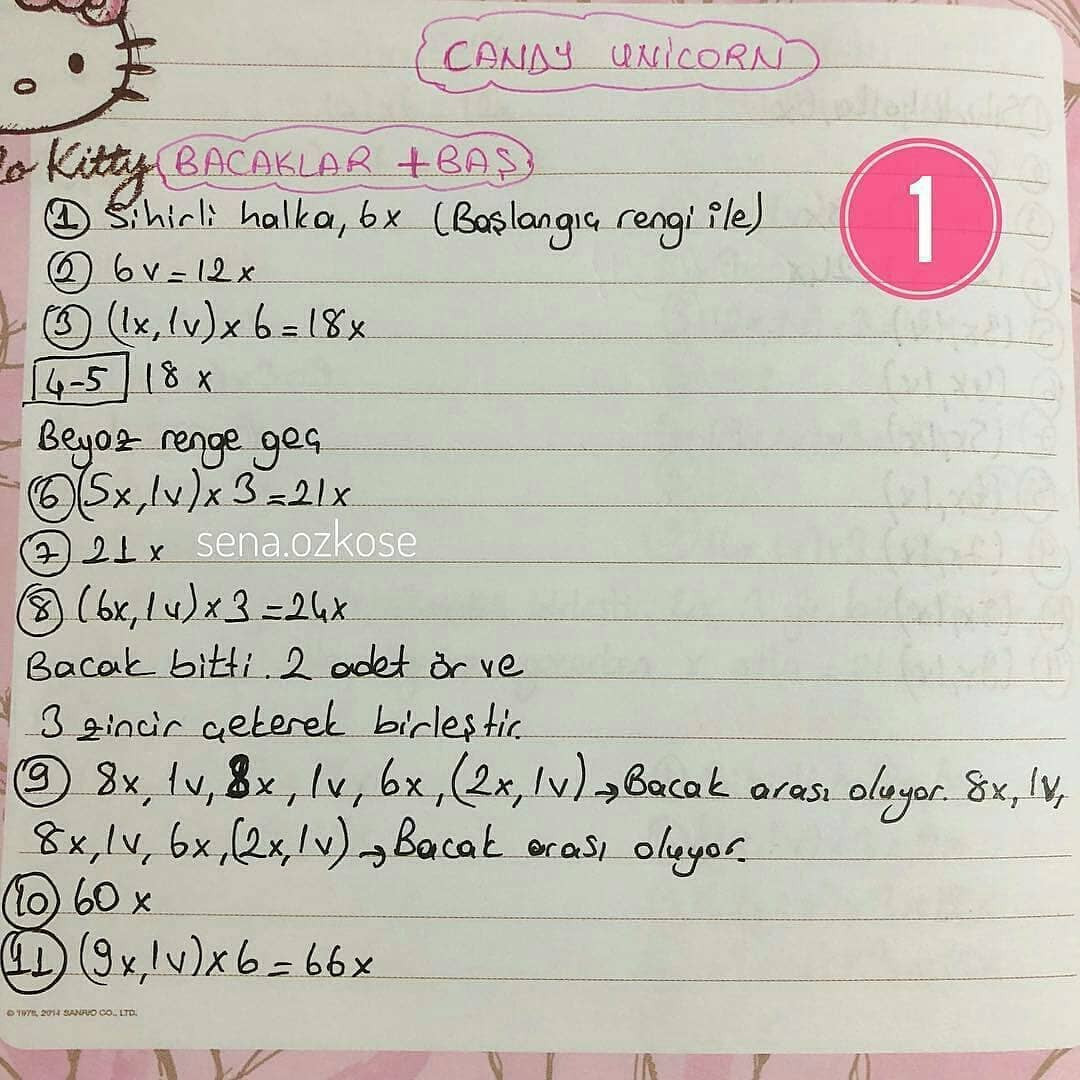 CANDY UNİCORN
Kitty
BACAKLAR + BAŞ
1
① Sihirli halka, 6x (Başlangıç rengi ile)
② 6v = 12x
③ (1x, 1v) x 6 = 18x
4-5 18 x
Beyaz renge geç
⑥ (5x, 1v) x 3 = 21x
⑦ 21 x
sena.ozkose
⑧ (6x, 1v) x 3 = 24x
Bacak bitti. 2 adet ör ve
3 zincir çekerek birleştir.
⑨ 8x, 1v, 8x, 1v, 6x, (2x, 1v) → Bacak arası oluyor. 8x, 1v,
8x, 1v, 6x, (2x, 1v) → Bacak arası oluyor.
⑩ 60 x
⑪ (9x, 1v) x 6 = 66x
© 1976, 2014 SANRIO CO., LTD.